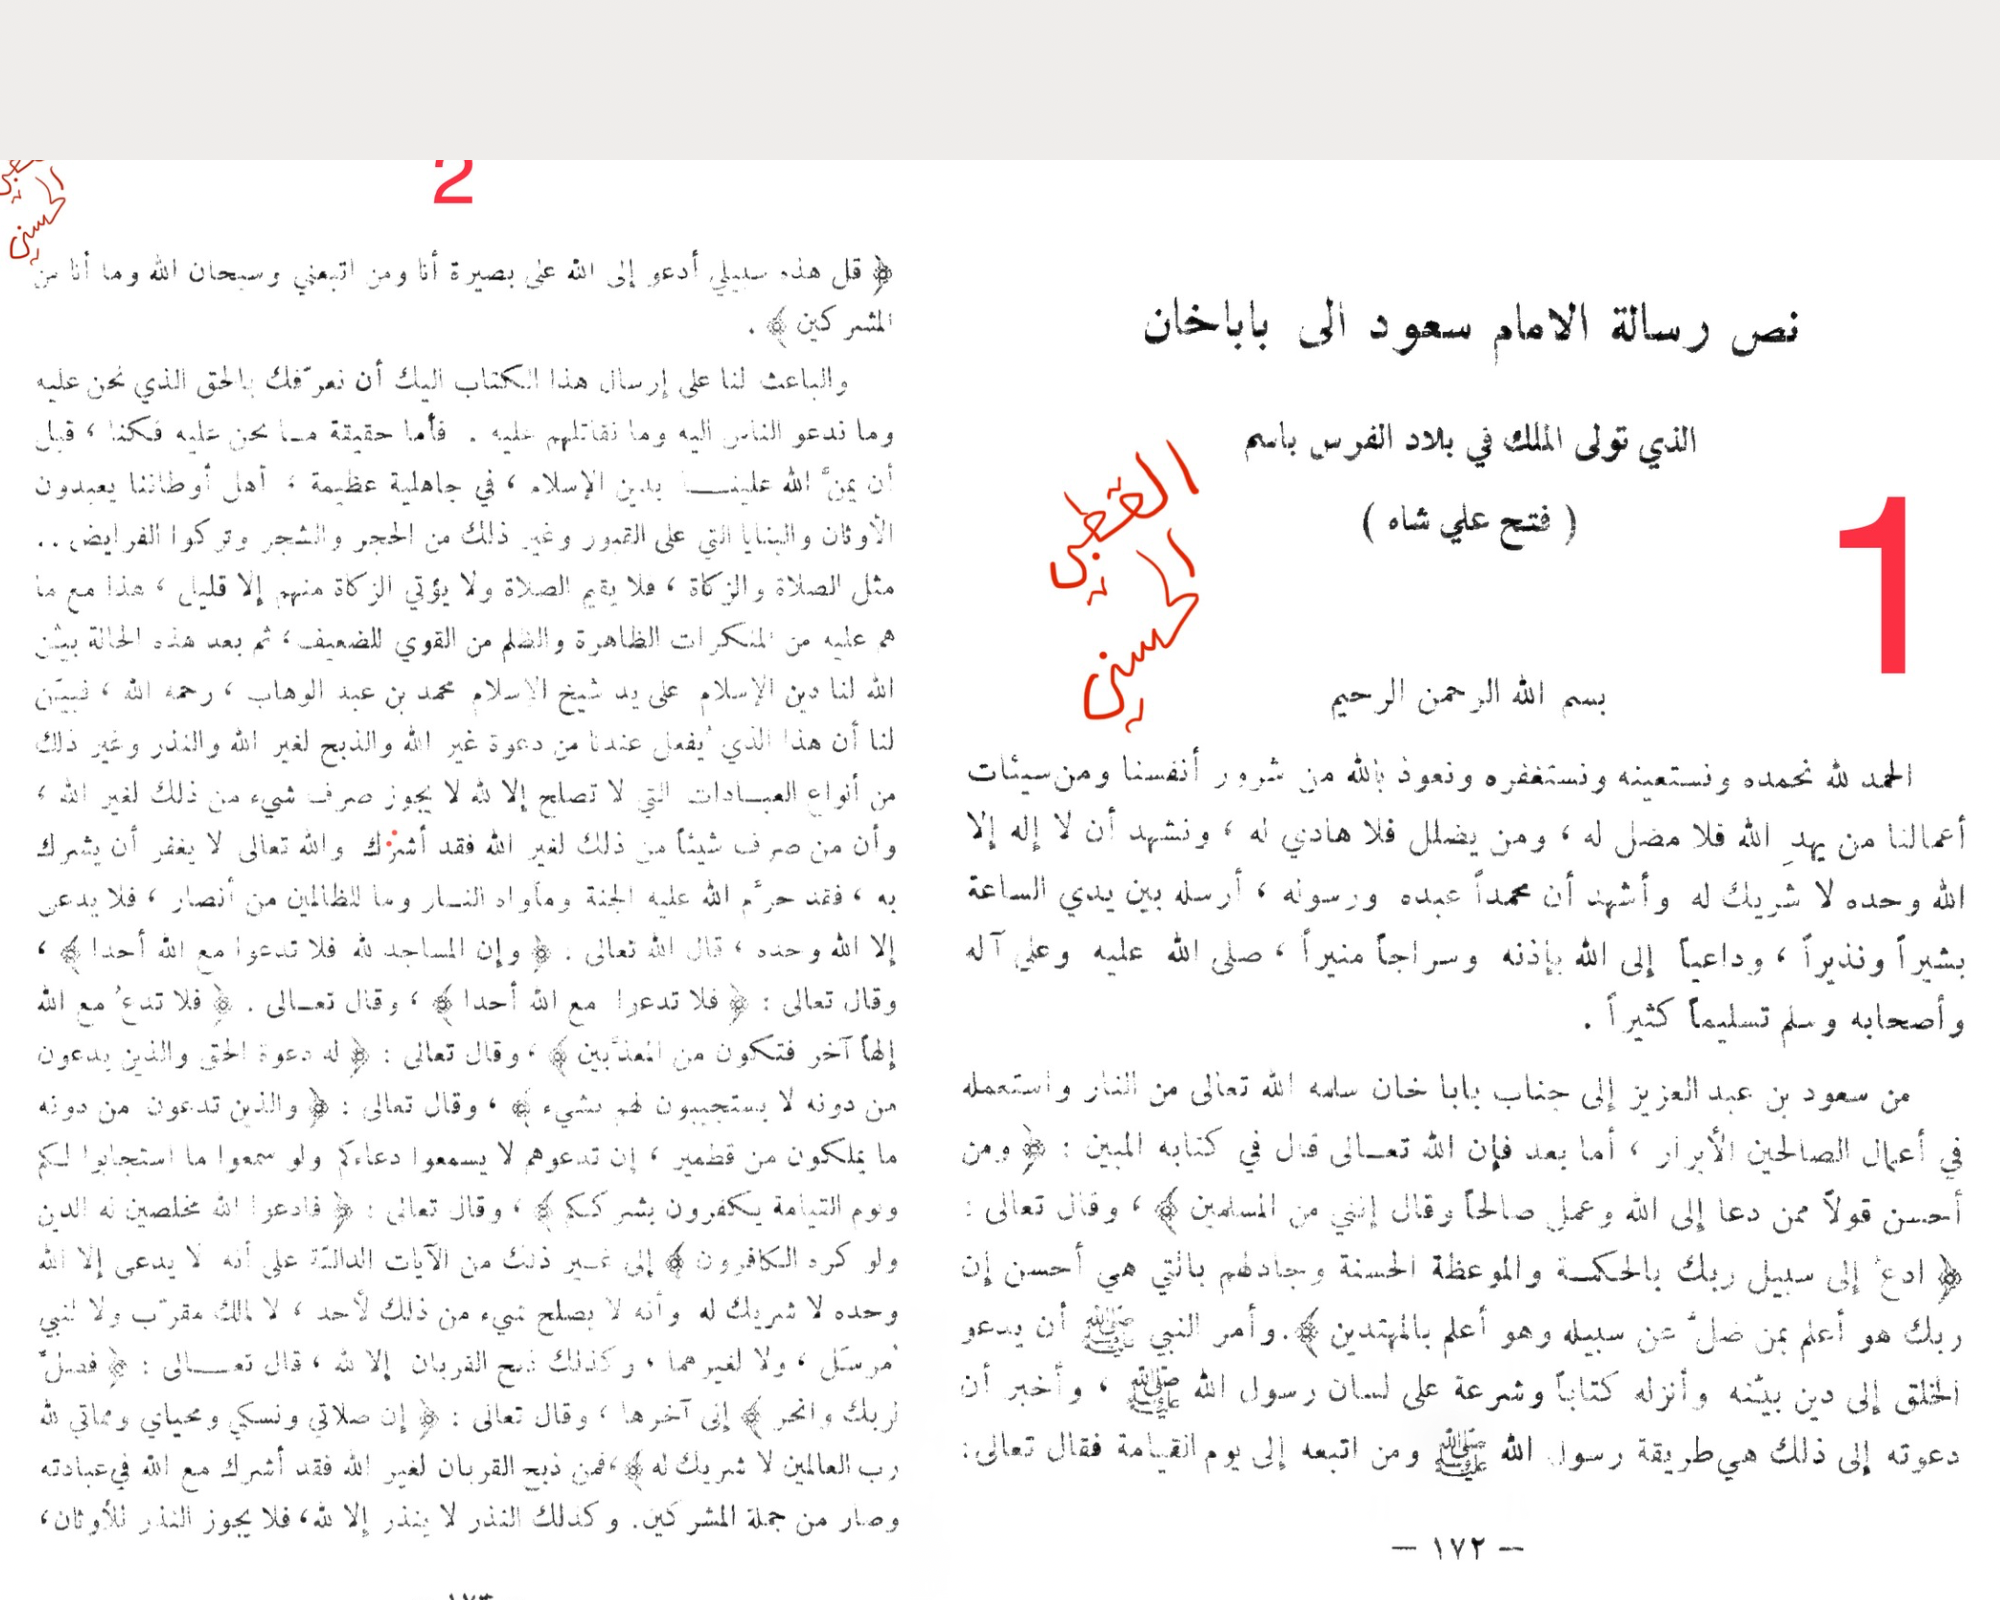 نص رسالة الامام سعود الى باباخان
الذي تولى الملك في بلاد الفرس باسم
( فتح علي شاه )
القطبي
الحسني
1
بسم الله الرحمن الرحيم
الحمد لله نحمده ونستعينه ونستغفره ونعوذ بالله من شرور أنفسنا ومن سيئات
أعمالنا من يهدِ الله فلا مضل له ، ومن يضلل فلا هادي له ، ونشهد أن لا إله إلا
الله وحده لا شريك له وأشهد أن محمداً عبده ورسوله ، أرسله بين يدي الساعة
بشيراً ونذيراً ، وداعياً إلى الله بإذنه وسراجاً منيراً ، صلى الله عليه وعلى آله
وأصحابه وسلم تسليماً كثيراً .
من سعود بن عبد العزيز إلى جناب بابا خان سلمه الله تعالى من النار واستعمله
في أعمال الصالحين الأبرار ، أما بعد فإن الله تعــالى قال في كتابه المبين : ﴿ ومن
أحسن قولاً ممن دعا إلى الله وعمل صالحاً وقال إنني من المسلمين ﴾ ، وقال تعالى :
﴿ ادعُ إلى سبيل ربك بالحكمــة والموعظة الحسنة وجادلهم بالتي هي أحسن إن
ربك هو أعلم بمن ضلَّ عن سبيله وهو أعلم بالمهتدين ﴾.وأمر النبي ﷺ أن يدعو
الخلق إلى دين بيّنه وأنزله كتاباً وشرعة على لسان رسول الله ﷺ ، وأخبر أن
دعوته إلى ذلك هي طريقة رسول الله ﷺ ومن اتبعه إلى يوم القيامة فقال تعالى:
— ١٧٢ —
2
الحسني
﴿ قل هذه سبيلي أدعو إلى الله على بصيرة أنا ومن اتبعني وسبحان الله وما أنا من
المشركين ﴾ .
والباعث لنا على إرسال هذا الكتاب اليك أن نعرّفك بالحق الذي نحن عليه
وما ندعو الناس اليه وما نقاتلهم عليه . فأما حقيقة مــا نحن عليه فكنا ، قبل
أن يمنَّ الله علينـــا بدين الإسلام ، في جاهلية عظيمة ؛ أهل أوطاننا يعبدون
الأوثان والبنايا التي على القبور وغير ذلك من الحجر والشجر وتركوا الفرايض ..
مثل الصلاة والزكاة ، فلا يقيم الصلاة ولا يؤتي الزكاة منهم إلا قليل ، هذا مع ما
هم عليه من المنكرات الظاهرة والظلم من القوي للضعيف ، ثم بعد هذه الحالة بيّن
الله لنا دين الإسلام على يد شيخ الإسلام محمد بن عبد الوهاب ، رحمه الله ، فبيّن
لنا أن هذا الذي يُفعل عندنا من دعوة غير الله والذبح لغير الله والنذر وغير ذلك
من أنواع العبــادات التي لا تصلح إلا لله لا يجوز صرف شيء من ذلك لغير الله ،
وأن من صرف شيئاً من ذلك لغير الله فقد أشرك والله تعالى لا يغفر أن يشرك
به ، فقد حرَّم الله عليه الجنة ومأواه النــار وما للظالمين من أنصار ، فلا يدعى
إلا الله وحده ، قال الله تعالى : ﴿ وإن المساجد لله فلا تدعوا مع الله أحدا ﴾ ،
وقال تعالى : ﴿ فلا تدعوا مع الله أحدا ﴾ ، وقال تعــالى . ﴿ فلا تدعُ مع الله
إلهاً آخر فتكون من المعذَّبين ﴾ ، وقال تعالى : ﴿ له دعوة الحق والذين يدعون
من دونه لا يستجيبون لهم بشيء ﴾ ، وقال تعالى : ﴿ والذين تدعون من دونه
ما يملكون من قطمير ، إن تدعوهم لا يسمعوا دعاءكم ولو سمعوا ما استجابوا لكم
ويوم القيامة يكفرون بشرككم ﴾ ، وقال تعالى : ﴿ فادعوا الله مخلصين له الدين
ولو كره الكافرون ﴾ إلى غــير ذلك من الآيات الدالّة على أنه لا يدعى إلا الله
وحده لا شريك له وأنه لا يصلح شيء من ذلك لأحد ، لا لملك مقرّب ولا لنبي
مُرسَل ، ولا لغيرهما ، وكذلك ذبح القربان إلا لله ، قال تعــــالى : ﴿ فصلِّ
لربك وانحر ﴾ إلى آخرها ، وقال تعالى : ﴿ إن صلاتي ونسكي ومحياي ومماتي لله
رب العالمين لا شريك له ﴾،فمن ذبح القربان لغير الله فقد أشرك مع الله في عبادته
وصار من جملة المشركين. وكذلك النذر لا ينذر إلا لله، فلا يجوز النذر للأوثان،